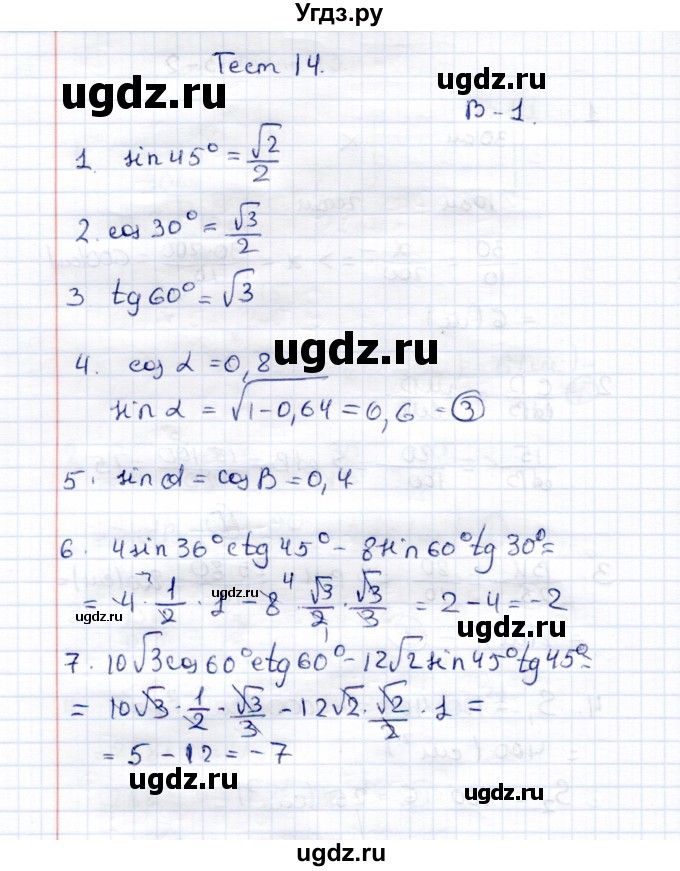 Угдз.ру
Тест 14.
ugdz.ru
ugdz.ru
В-1.
1. sin 45° = √2/2
2. cos 30° = √3/2
3 tg 60° = √3
ugdz.ru
4. cos α = 0,8
sin α = √(1-0,64) = 0,6 - ③
5. sin α = cos B = 0,4
6. 4 sin 36° ctg 45° - 8 sin 60° tg 30° =
= 4 · 1/2 · 1 - 8 4 · √3/2 · √3/3 = 2 - 4 = -2
ugdz.ru
ugdz.ru
7. 10√3 cos 60° ctg 60° - 12√2 sin 45° tg 45° =
= 10√3 · 1/2 · √3/3 - 12√2 · √2/2 · 1 =
= 5 - 12 = -7
ugdz.ru
ugdz.ru
ugdz.ru